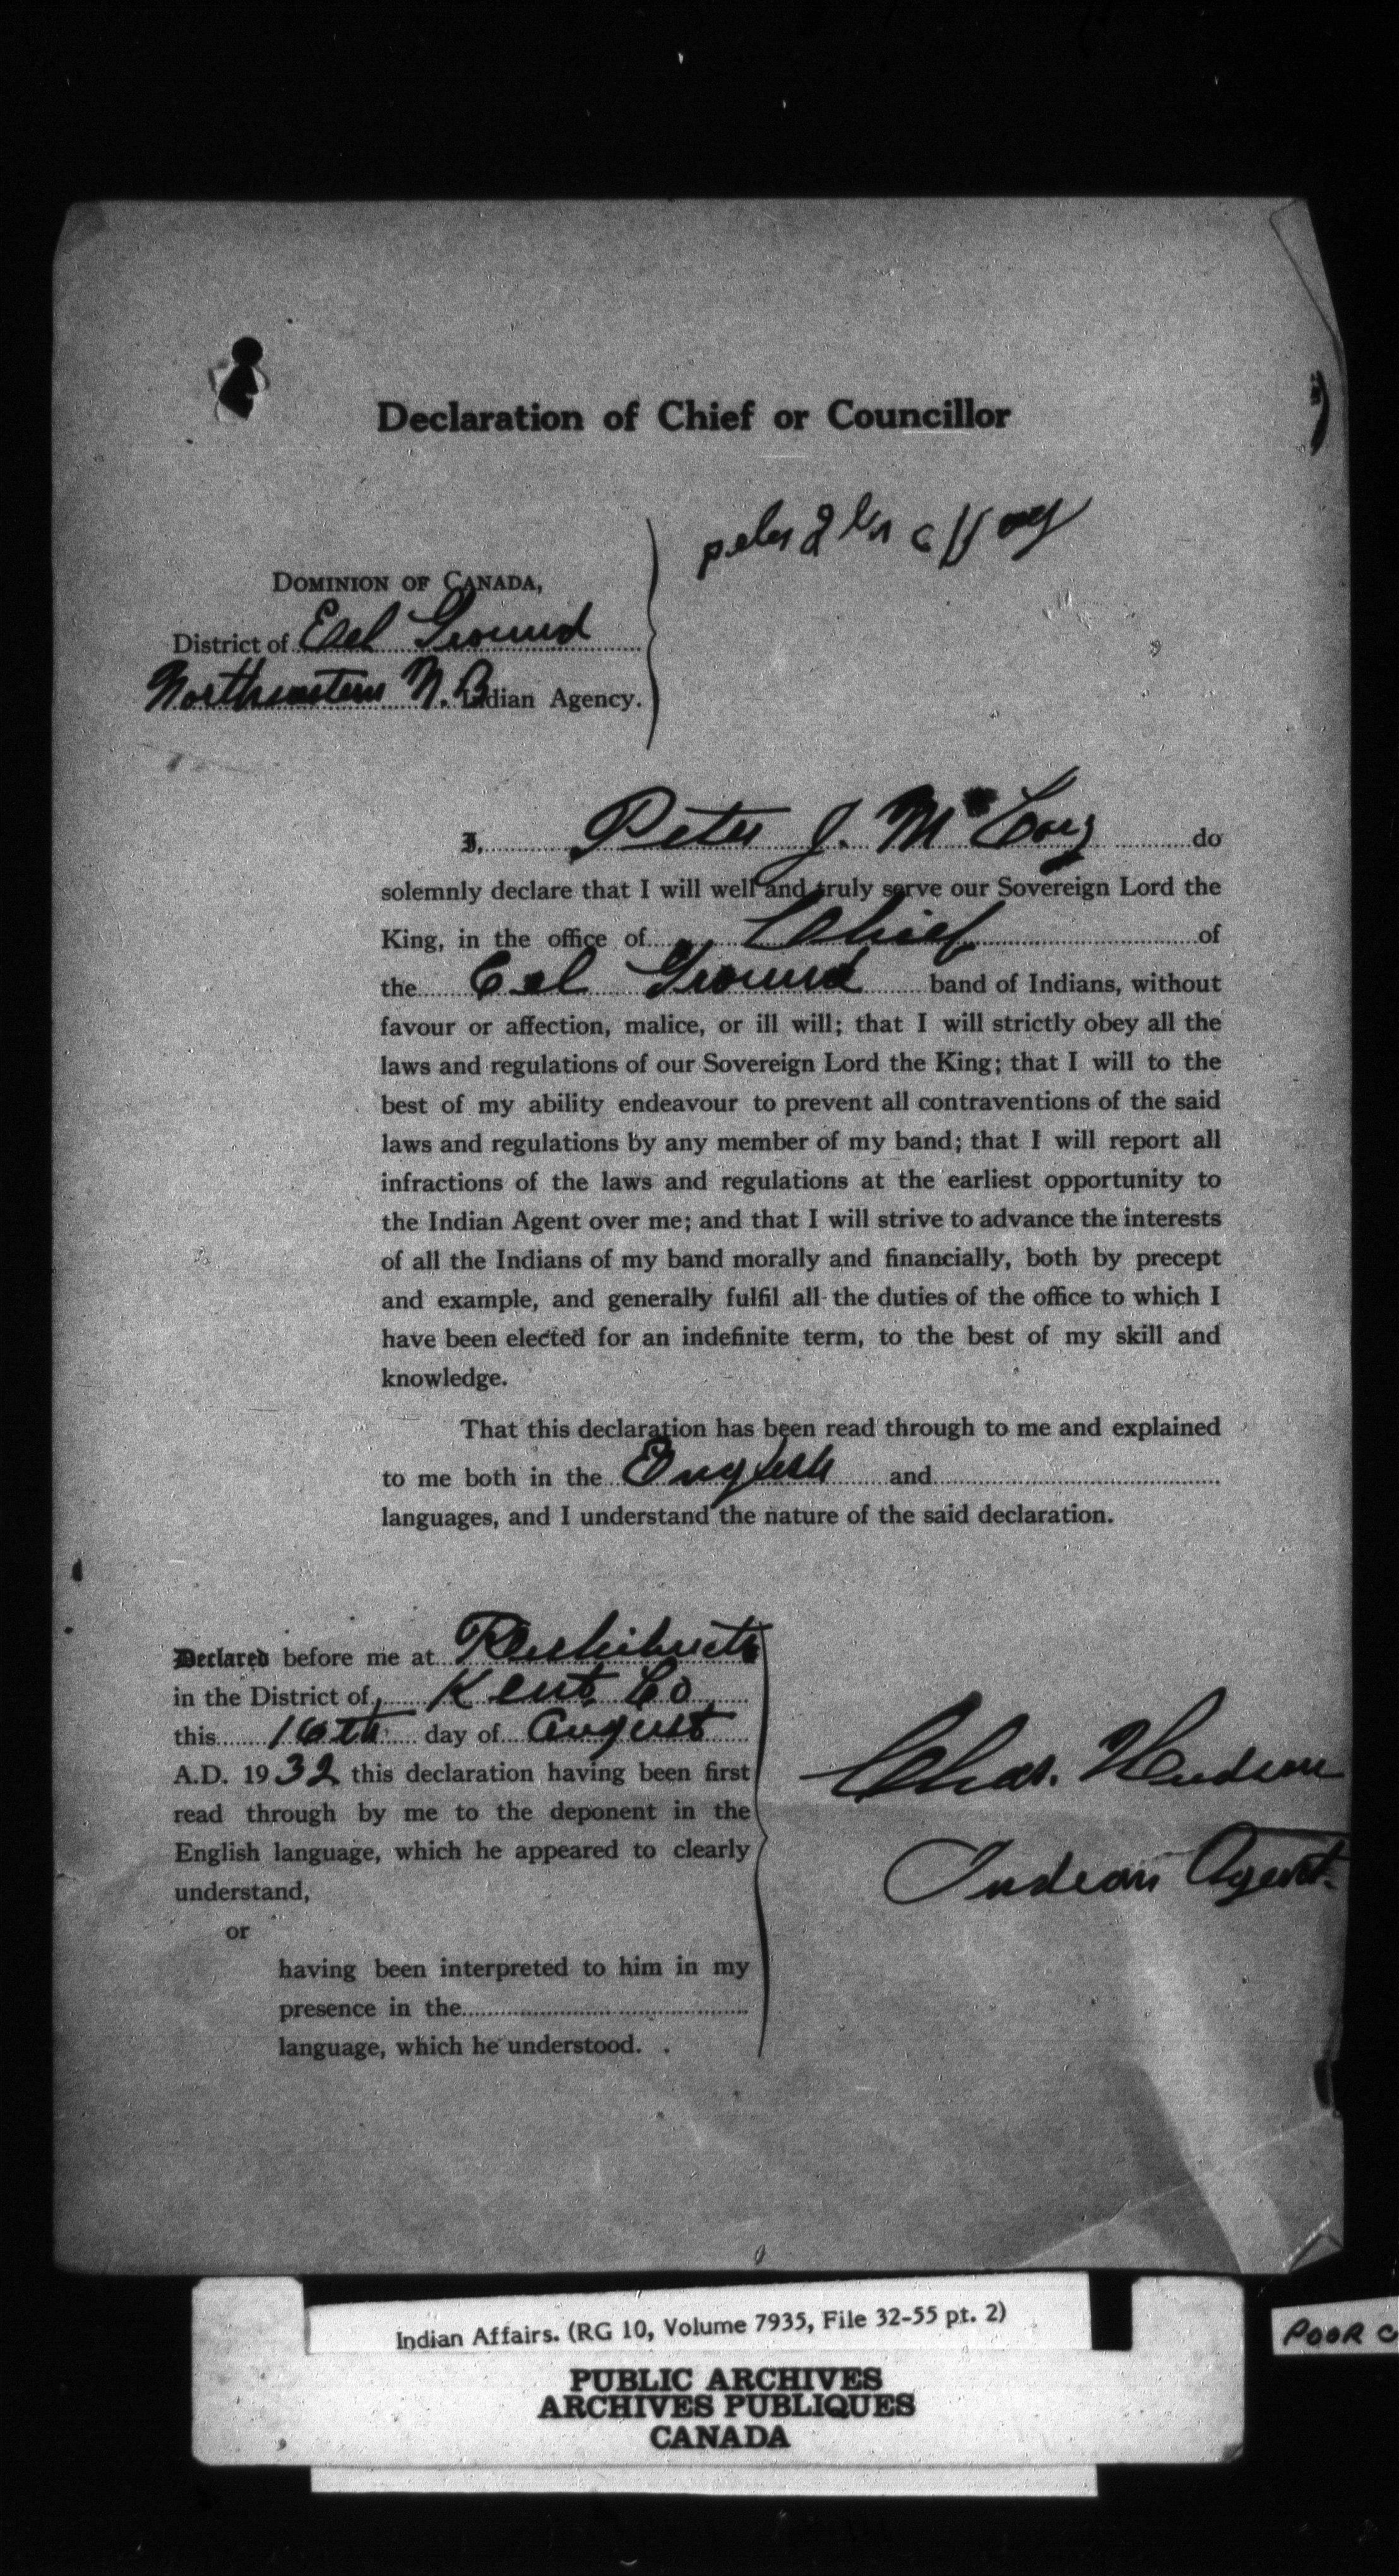 Declaration of Chief or Councillor
DOMINION OF CANADA,
District of Eel Ground
Northeastern N.B. Indian Agency.
I, Peter J. McCoy do
solemnly declare that I will well and truly serve our Sovereign Lord the
King, in the office of Chief of
the Eel Ground band of Indians, without
favour or affection, malice, or ill will; that I will strictly obey all the
laws and regulations of our Sovereign Lord the King; that I will to the
best of my ability endeavour to prevent all contraventions of the said
laws and regulations by any member of my band; that I will report all
infractions of the laws and regulations at the earliest opportunity to
the Indian Agent over me; and that I will strive to advance the interests
of all the Indians of my band morally and financially, both by precept
and example, and generally fulfil all the duties of the office to which I
have been elected for an indefinite term, to the best of my skill and
knowledge.
That this declaration has been read through to me and explained
to me both in the English and
languages, and I understand the nature of the said declaration.
Declared before me at Richibucto
in the District of Kent Co
this 16th day of August
A.D. 1932 this declaration having been first
read through by me to the deponent in the
English language, which he appeared to clearly
understand,
or
having been interpreted to him in my
presence in the
language, which he understood.
Chas. Hudson
Indian Agent.
Indian Affairs. (RG 10, Volume 7935, File 32-55 pt. 2)
PUBLIC ARCHIVES
ARCHIVES PUBLIQUES
CANADA
POOR C